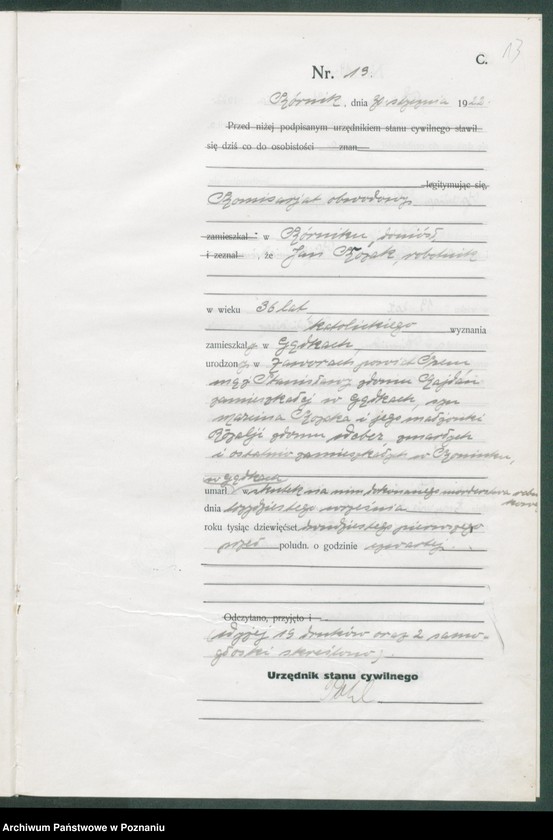 C.
13
Nr. 13.
Kórnik, dnia stycznia 1922.
Przed niżej podpisanym urzędnikiem stanu cywilnego stawił
się dziś co do osobistości znan
legitymując się,
Komisarjat obwodowy
zamieszkał w Kórniku, doniósł,
i zeznał że Jan robotnik
w wieku 36 lat
katolickiego wyznania
zamieszkały w Gądkach,
urodzony w Jaworach powiat Śrem
mąż Stanisławy zdomu
zamieszkałej w Gądkach, syn
Marcina i jego małżonki
Rozalji zdomu zmarłych
i ostatnio zamieszkałych w
w Gądkach
umarł w skutek na nim dokonanego morderstwa
dnia trzydziestego września
roku tysiąc dziewięćset dwudziestego pierwszego
przed połudn. o godzinie czwartej.
Odczytano, przyjęto i
Wyżej 19 druków oraz 2 samo-
głoski skreślono.
Urzędnik stanu cywilnego
Archiwum Państwowe w Poznaniu